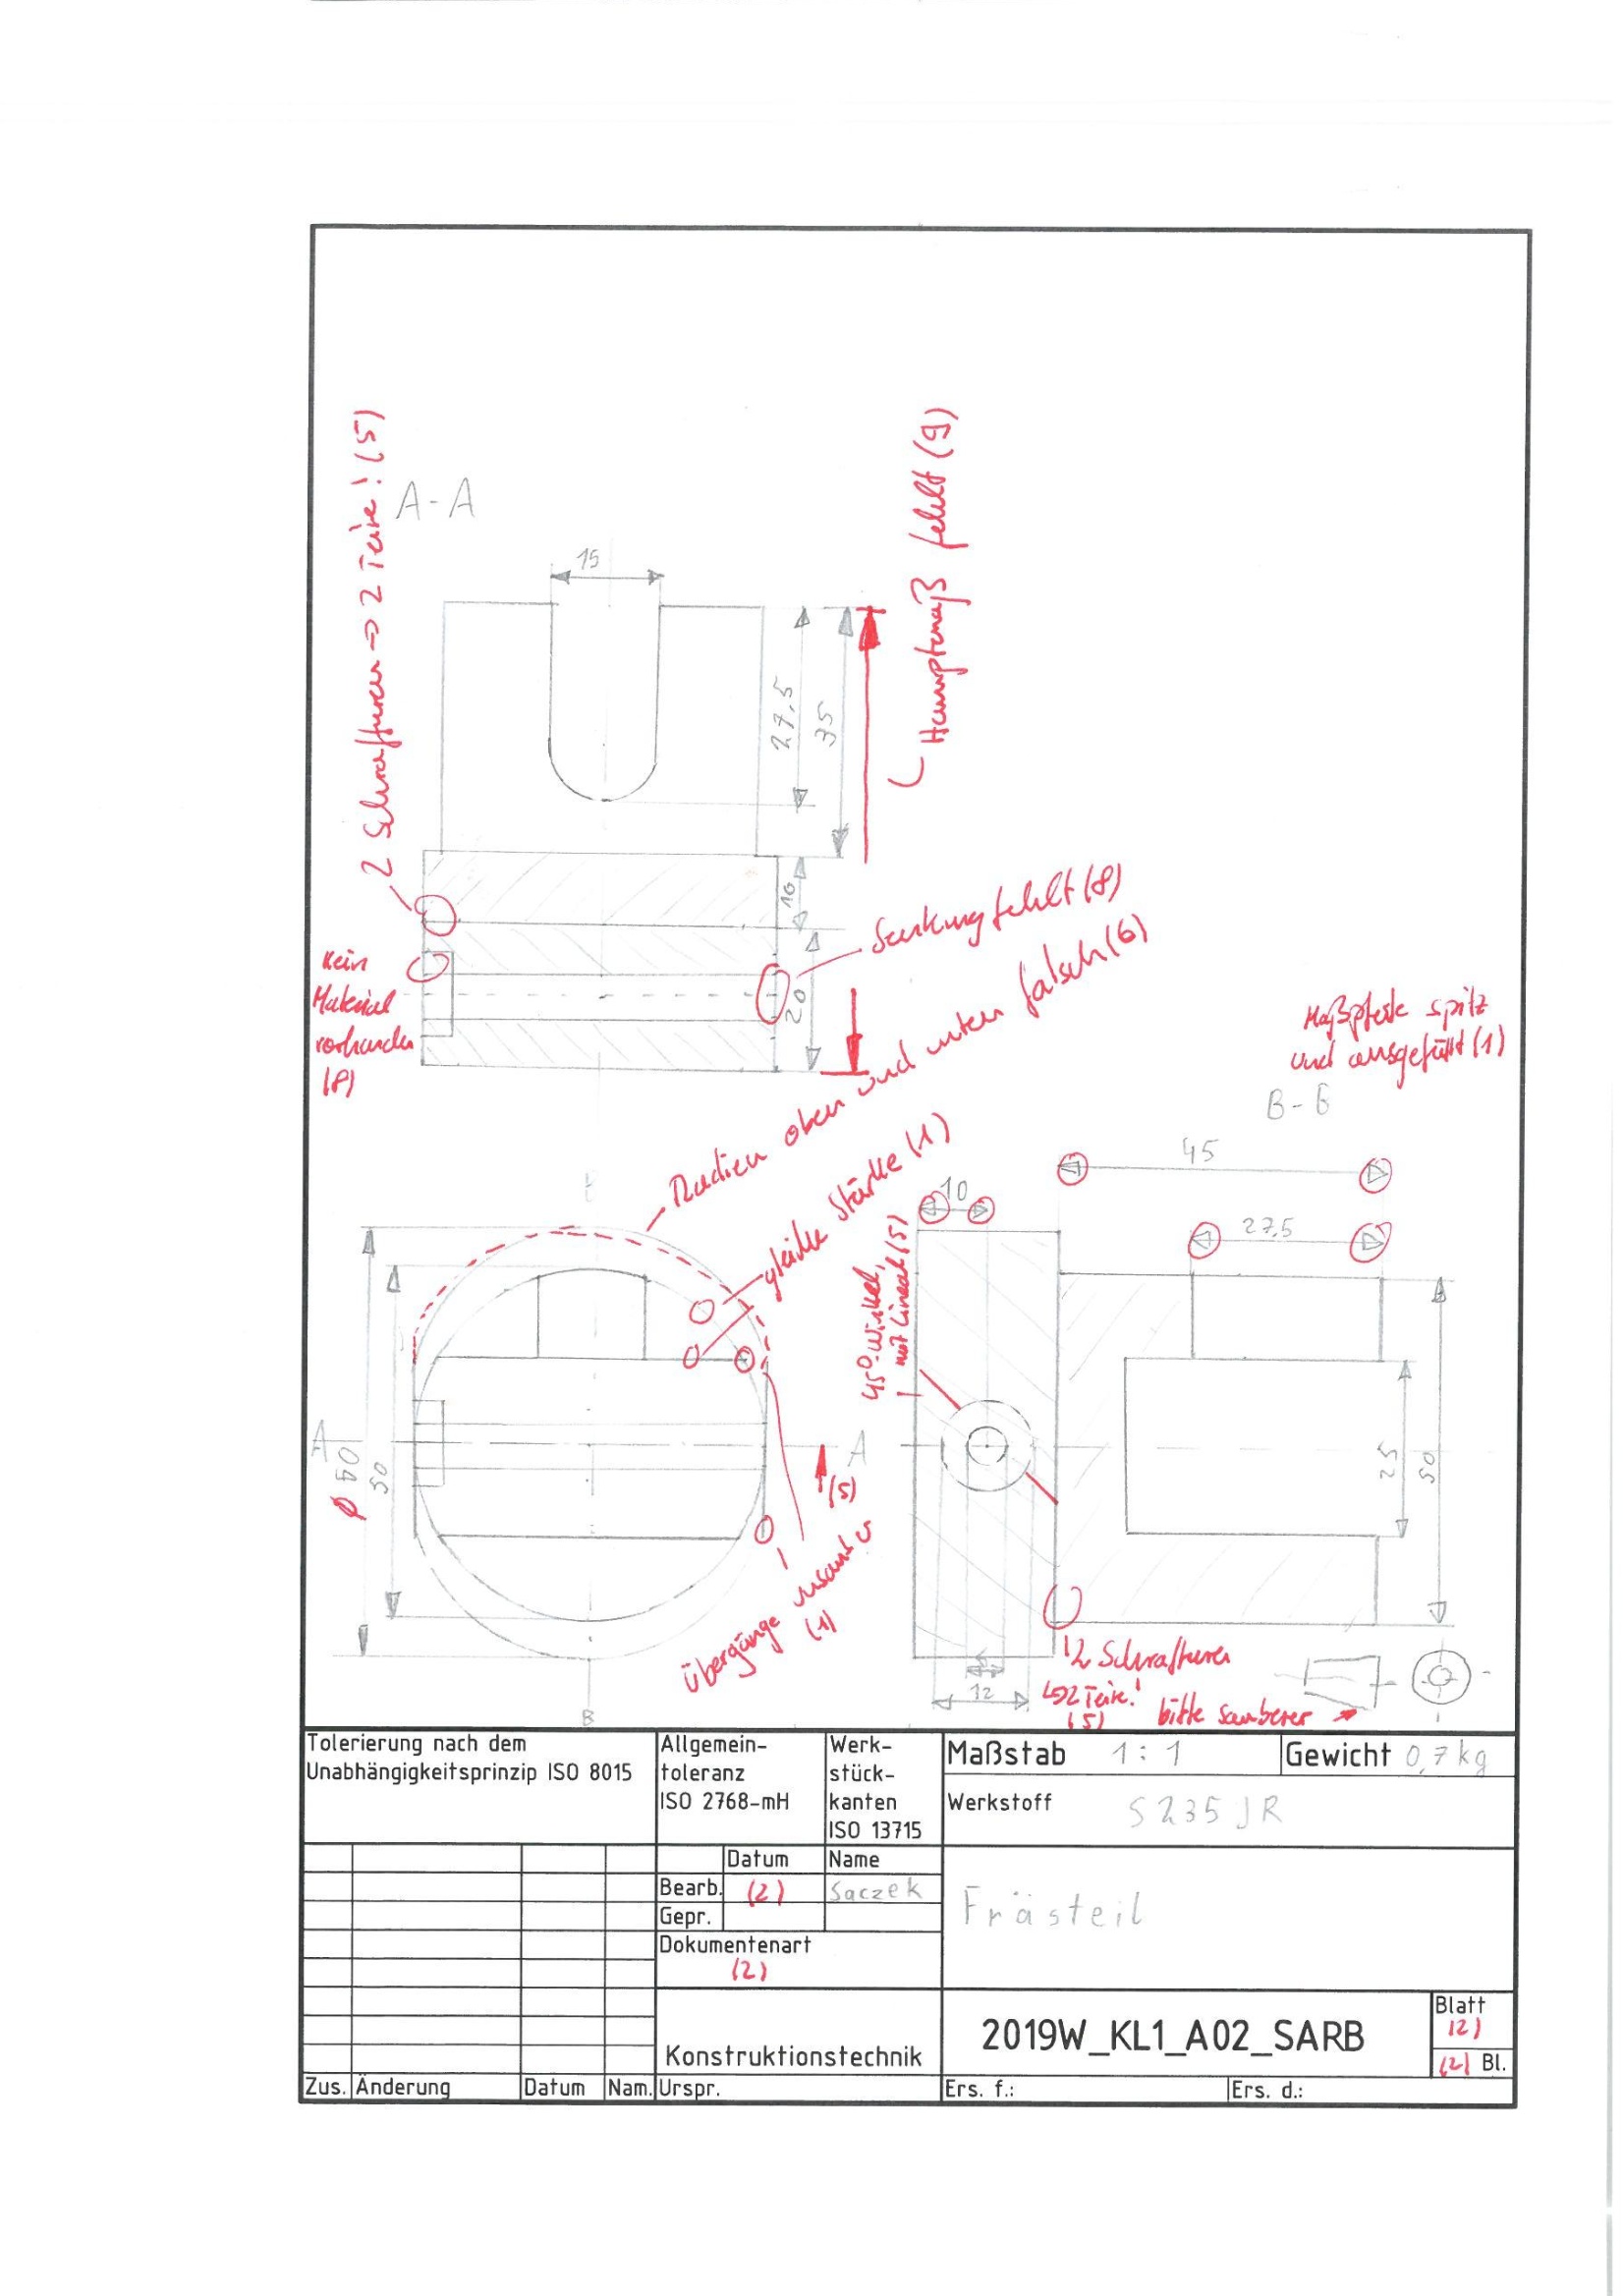 2 Schraffuren -> 2 Teile! (5)
A-A
15
27,5
35
Hauptmaß fehlt (9)
10
20
Senkung fehlt (8)
Kein
Material
vorhanden
(8)
Radien oben und unten falsch (6)
gleiche Stärke (1)
Maßpfeile spitz
und ausgefüllt (1)
B-B
45
10
27,5
45°-Winkel,
mit Lineal (5)
A
A
(5)
ø 60
50
25
50
Übergänge
(1)
B
12
2 Schraffuren
2 Teile!
(5)
bitte sauberer
Tolerierung nach dem
Unabhängigkeitsprinzip ISO 8015
Allgemein-
toleranz
ISO 2768-mH
Werk-
stück-
kanten
ISO 13715
Maßstab 1:1
Gewicht 0,7kg
Werkstoff S235JR
Datum Name
Bearb. (2) Saczek
Gepr.
Dokumentenart
(2)
Frästeil
Konstruktionstechnik
2019W_KL1_A02_SARB
Blatt
(2)
(2) Bl.
Zus. Änderung Datum Nam. Urspr. Ers. f.: Ers. d.: